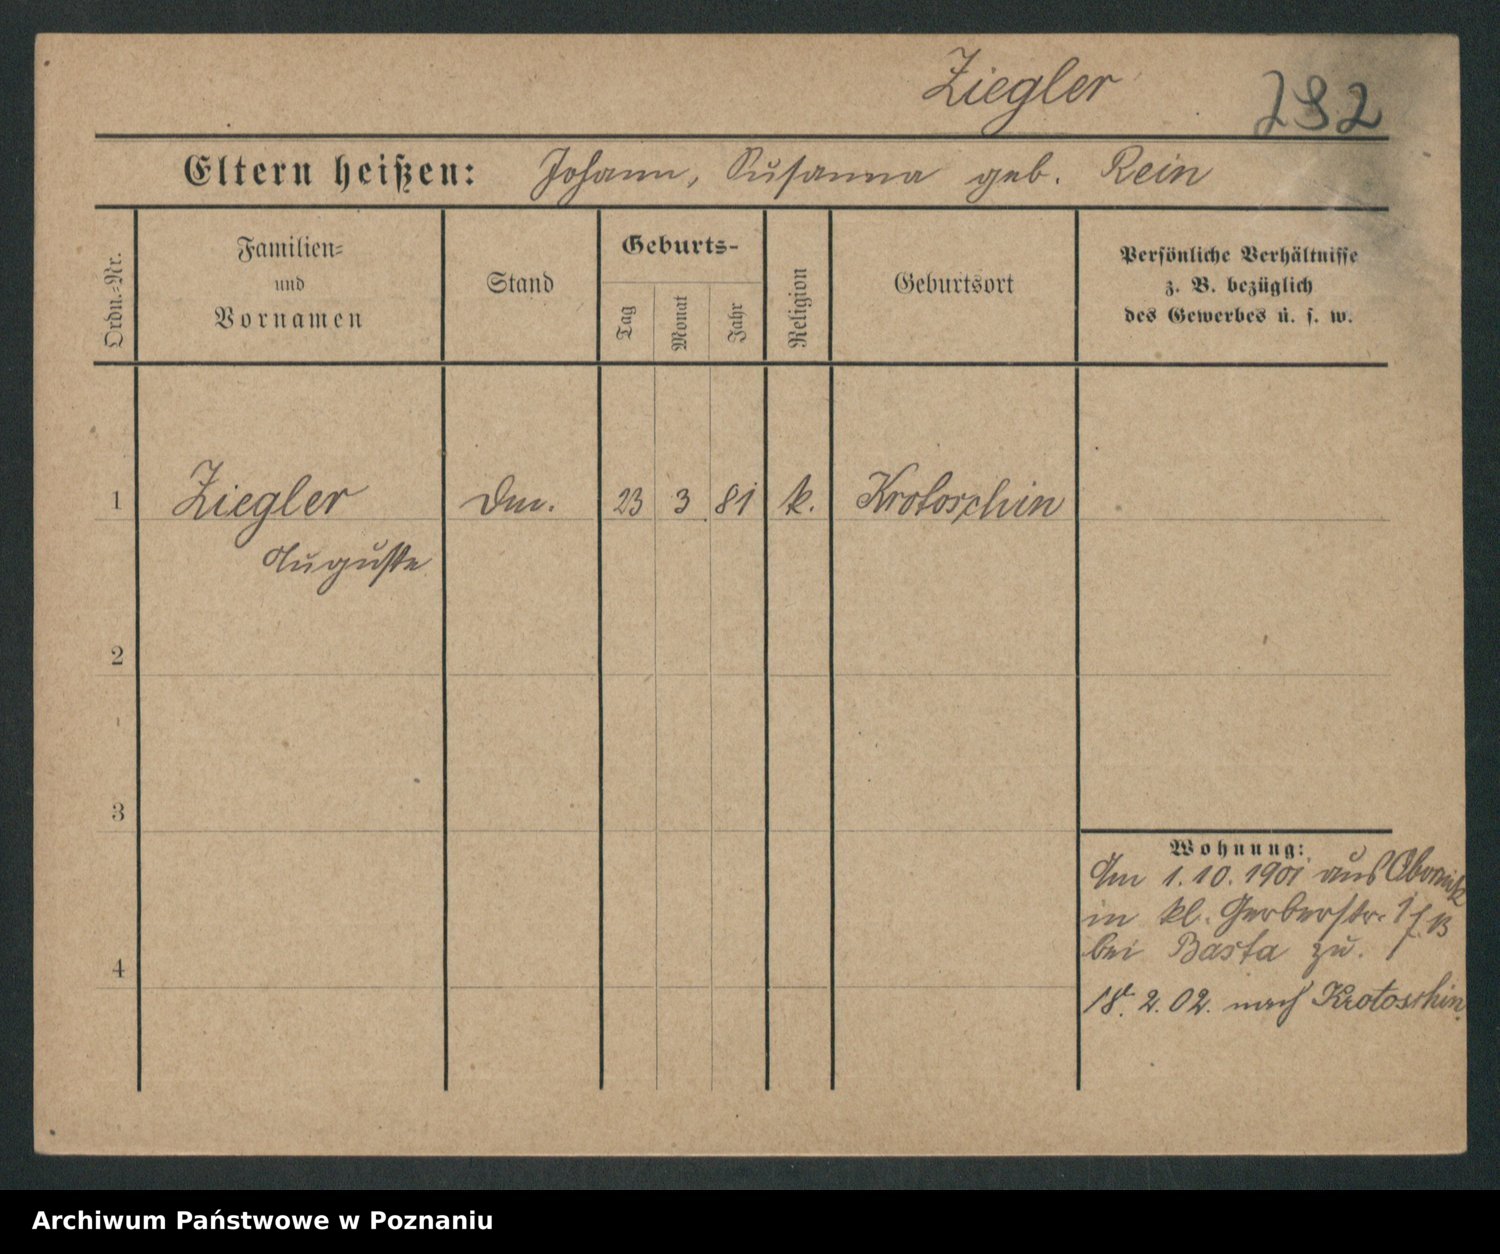 Ziegler 292
Eltern heißen: Johann, Susanna geb. Rein
Ordn.=Nr.
Familien=
und
Vornamen
Stand
Geburts-
Tag
Monat
Jahr
Religion
Geburtsort
Persönliche Verhältnisse
z. B. bezüglich
des Gewerbes u. s. w.
1 Ziegler 23 3 81 k. Krotoschin
Auguste
2
3
Wohnung:
Am 1.10.1901 aus Obornik
in kl. Gerberstr.
bei Basta zu.
4
18.2.02. nach Krotoschin.
Archiwum Państwowe w Poznaniu